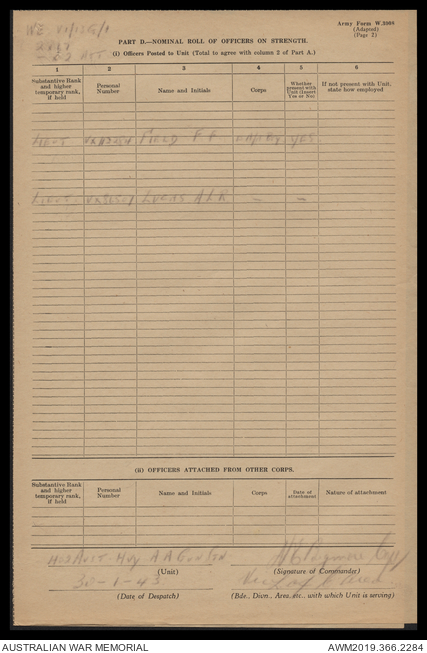 Army Form W.3008
(Adapted)
(Page 2)
WE. VI/12G/1
PART D.—NOMINAL ROLL OF OFFICERS ON STRENGTH.
(i) Officers Posted to Unit (Total to agree with column 2 of Part A.)
1 2 3 4 5 6
Substantive Rank and higher temporary rank, if held
Personal Number
Name and Initials
Corps
Whether present with Unit (Insert Yes or No)
If not present with Unit, state how employed
LIEUT FIELD F F YES
LIEUT LUCAS A L R — —
(ii) OFFICERS ATTACHED FROM OTHER CORPS.
Substantive Rank and higher temporary rank, if held
Personal Number
Name and Initials
Corps
Date of attachment
Nature of attachment
Aust Hvy A A Gun Stn
(Unit)
(Signature of Commander)
30-1-43
(Date of Despatch)
(Bde., Divn., Area, etc., with which Unit is serving)
AUSTRALIAN WAR MEMORIAL
AWM2019.366.2284